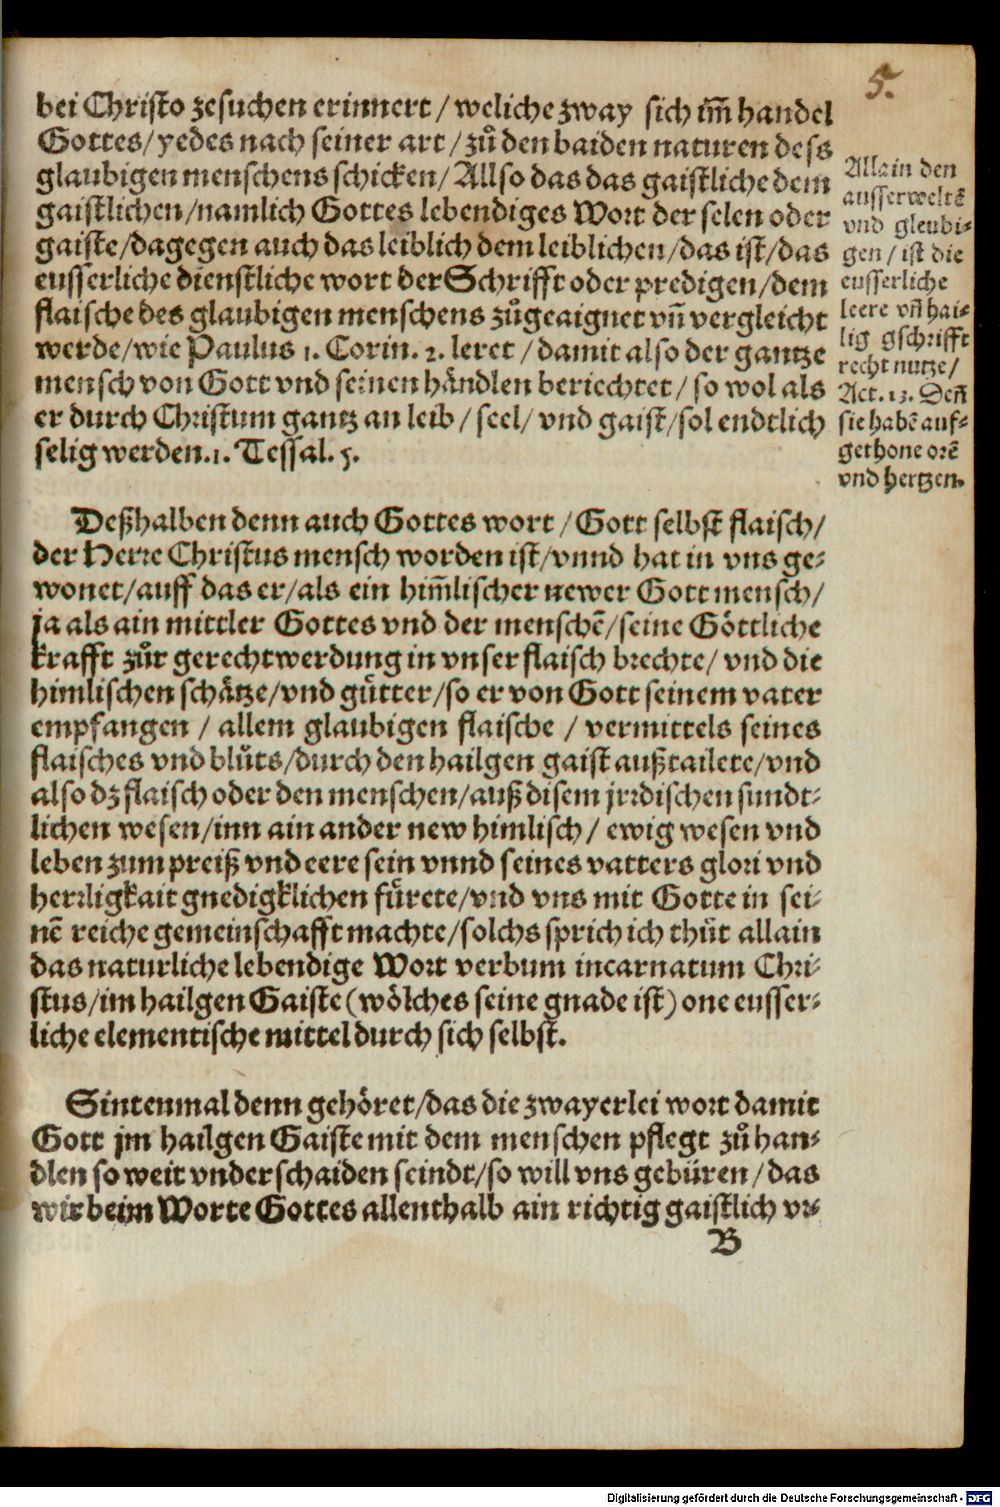 5.
bei Christo zesuchen erinnert / weliche zway sich im̃ handel
Gottes / yedes nach seiner art / zů den baiden naturen dess
glaubigen menschens schicken / Allso das das gaistliche dem
gaistlichen / namlich Gottes lebendiges Wort der selen oder
gaiste / dagegen auch das leiblich dem leiblichen / das ist / das
eusserliche dienstliche wort der Schrifft oder predigen / dem
flaische des glaubigen menschens zůgeaignet vñ vergleicht
werde / wie Paulus 1. Corin. 2. leret / damit also der gantze
mensch von Gott vnd seinen håndlen beriechtet / so wol als
er durch Christum gantz an leib / seel / vnd gaist / sol endtlich
selig werden. 1. Tessal. 5.
Allain den
ausserweltẽ
vnd gleubi⸗
gen / ist die
eusserliche
leere vñ hai⸗
lig gschrifft
recht nutze /
Act. 13. Deñ
sie habẽ auf⸗
gethone orẽ
vnd hertzen.
Deßhalben denn auch Gottes wort / Gott selbst flaisch /
der Herre Christus mensch worden ist / vnnd hat in vns ge⸗
wonet / auff das er / als ein him̃lischer newer Gott mensch /
ja als ain mittler Gottes vnd der menschẽ / seine Göttliche
krafft zůr gerechtwerdung in vnser flaisch brechte / vnd die
himlischen schåtze / vnd gůtter / so er von Gott seinem vater
empfangen / allem glaubigen flaische / vermittels seines
flaisches vnd blůts / durch den hailgen gaist außtailete / vnd
also dz flaisch oder den menschen / auß disem jrrdischen sundt⸗
lichen wesen / inn ain ander new himlisch / ewig wesen vnd
leben zum preiß vnd eere sein vnnd seines vatters glori vnd
herrligkait gnedigklichen fürete / vnd vns mit Gotte in sei⸗
nẽ reiche gemeinschafft machte / solchs sprich ich thůt allain
das naturliche lebendige Wort verbum incarnatum Chri⸗
stus / im hailgen Gaiste (wölches seine gnade ist) one eusser⸗
liche elementische mittel durch sich selbst.
Sintenmal denn gehöret / das die zwayerlei wort damit
Gott jm hailgen Gaiste mit dem menschen pflegt zů han⸗
dlen so weit vnderschaiden seindt / so will vns gebüren / das
wir beim Worte Gottes allenthalb ain richtig gaistlich vr⸗
B
Digitalisierung gefördert durch die Deutsche Forschungsgemeinschaft - DFG